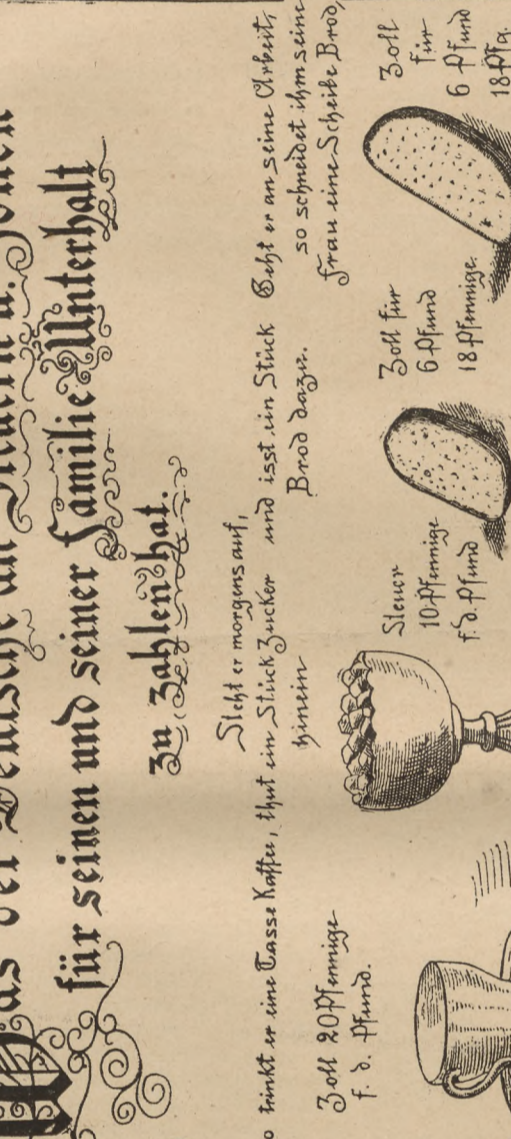 der Deutsche an Steuern u. Zöllen
für seinen und seiner Familie Unterhalt
zu zahlen hat.
Steht er morgens auf,
trinkt er eine Tasse Kaffee, thut ein Stück Zucker und isst ein Stück
hinein
Brod dazu.
Geht er an seine Arbeit,
so schneidet ihm seine
Frau eine Scheibe Brod,
Zoll 20 Pfennige
f. d. Pfund.
Steuer
10 Pfennige
f. d. Pfund
Zoll für
6 Pfund
18 Pfennige.
Zoll
für
6 Pfund
18 Pfg.